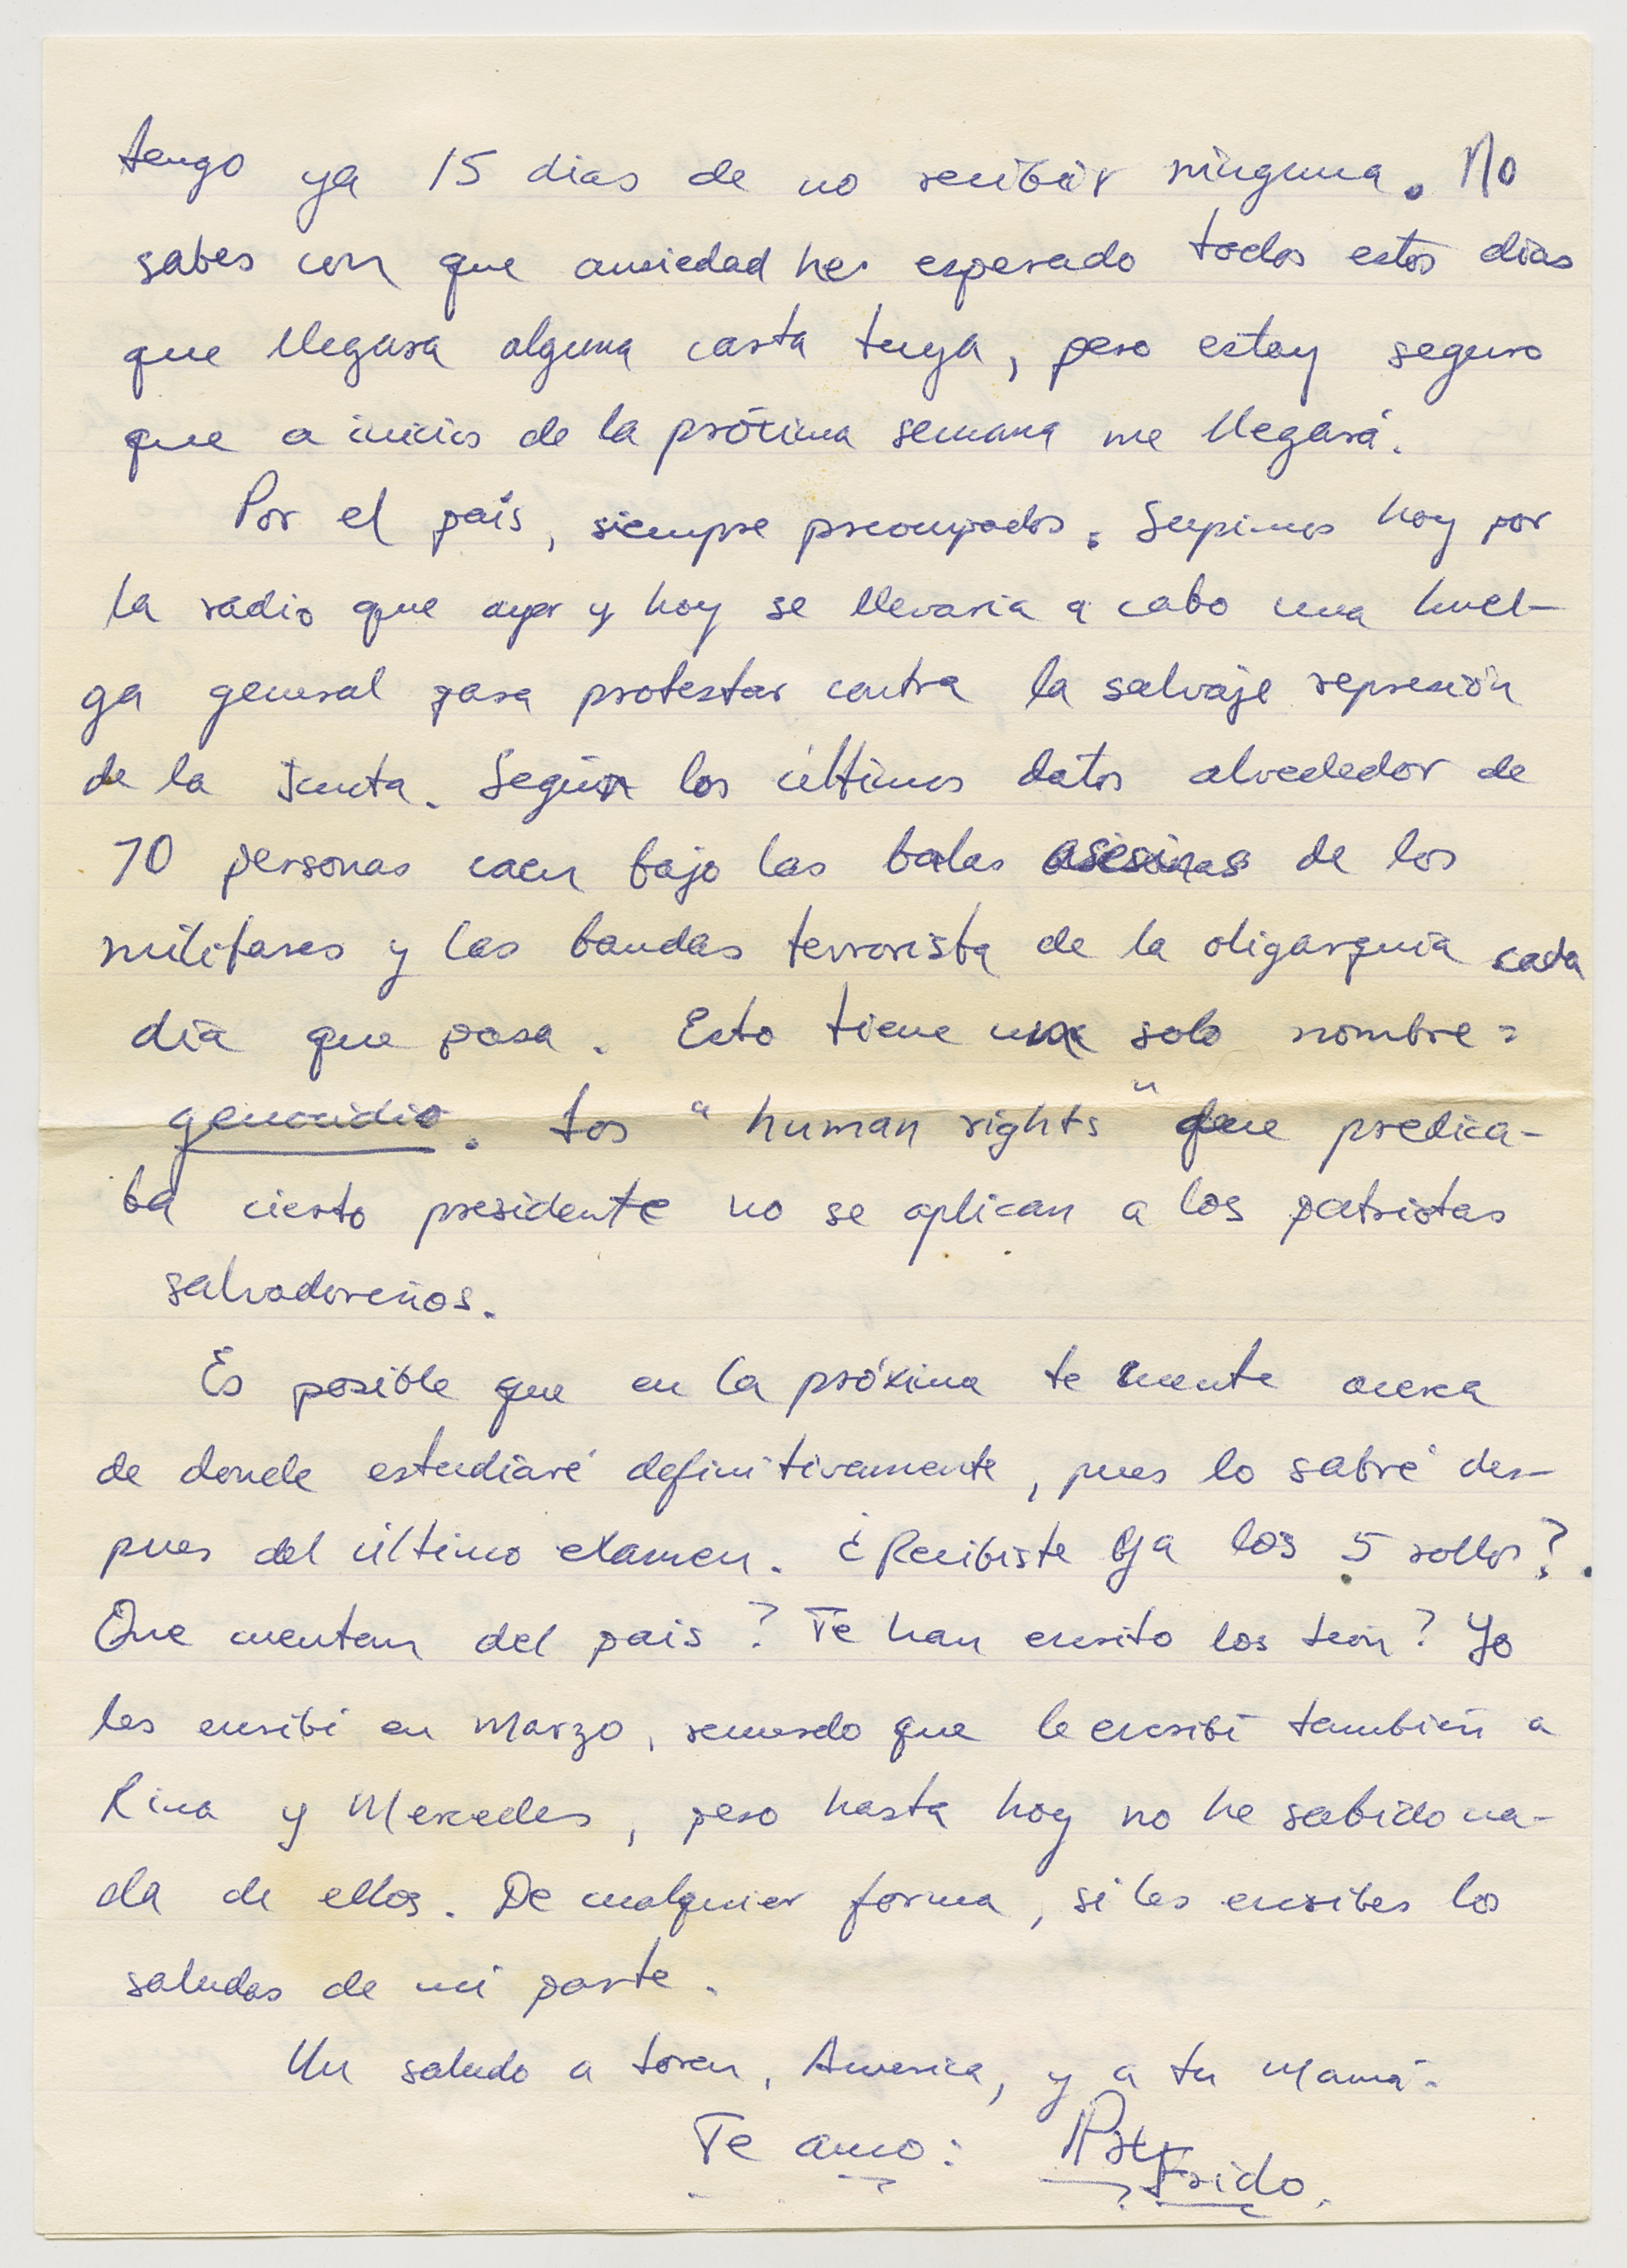 tengo ya 15 dias de no recibir ninguna. No
sabes con que ansiedad he esperado todos estos dias
que llegara alguna carta tuya, pero estoy seguro
que a inicios de la próxima semana me llegará.
Por el país, siempre preocupados. Supimos hoy por
la radio que ayer y hoy se llevaria a cabo una huel-
ga general para protestar contra la salvaje represión
de la Junta. Según los últimos datos alrededor de
70 personas caen bajo las balas asesinas de los
militares y las bandas terrorista de la oligarquia cada
día que pasa. Esto tiene un solo nombre:
genocidio. Los "human rights" que predica-
ba cierto presidente no se aplican a los patriotas
salvadoreños.
Es posible que en la próxima te cuente acerca
de donde estudiaré definitivamente, pues lo sabré des-
pues del último examen. ¿Recibiste ya los 5 rollos?.
Que cuentan del pais? Te han escrito los            ? Yo
les escribí en Marzo, recuerdo que le escribí también a
Rina y Mercedes, pero hasta hoy no he sabido na-
da de ellos. De cualquier forma, si les escribes los
saludas de mi parte.
Un saludo a            , America, y a tu Mamá.
Te amo:
Frido.